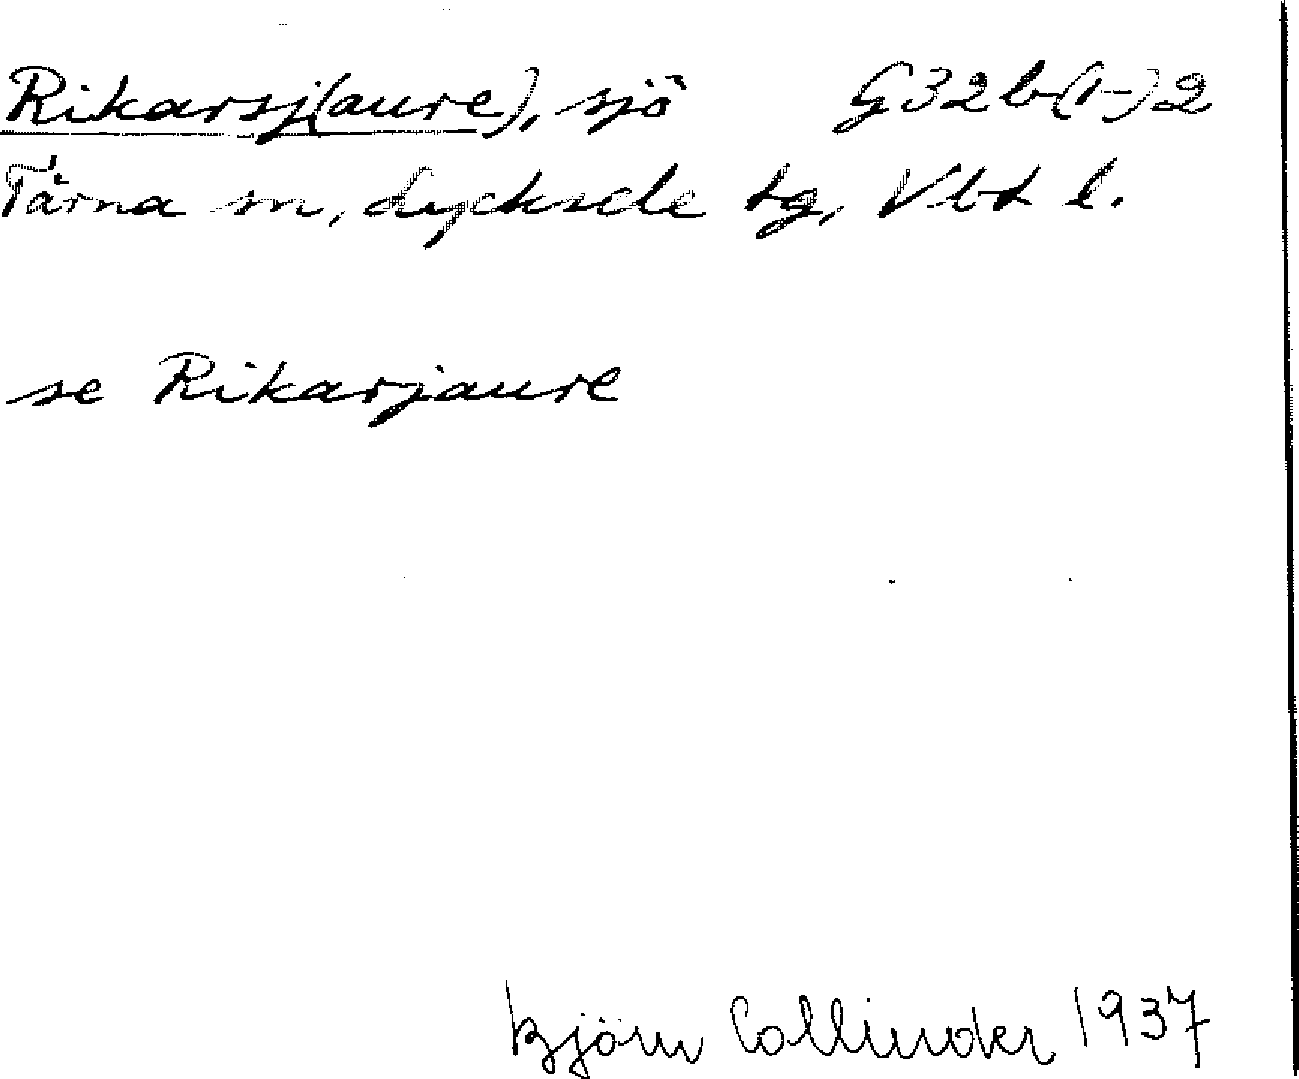 Rikarsj(aure), sjö G32b(1-)2
Tärna sn, Lycksele tg, Vbt l.
se Rikarjaure
Björn Collinder 1937